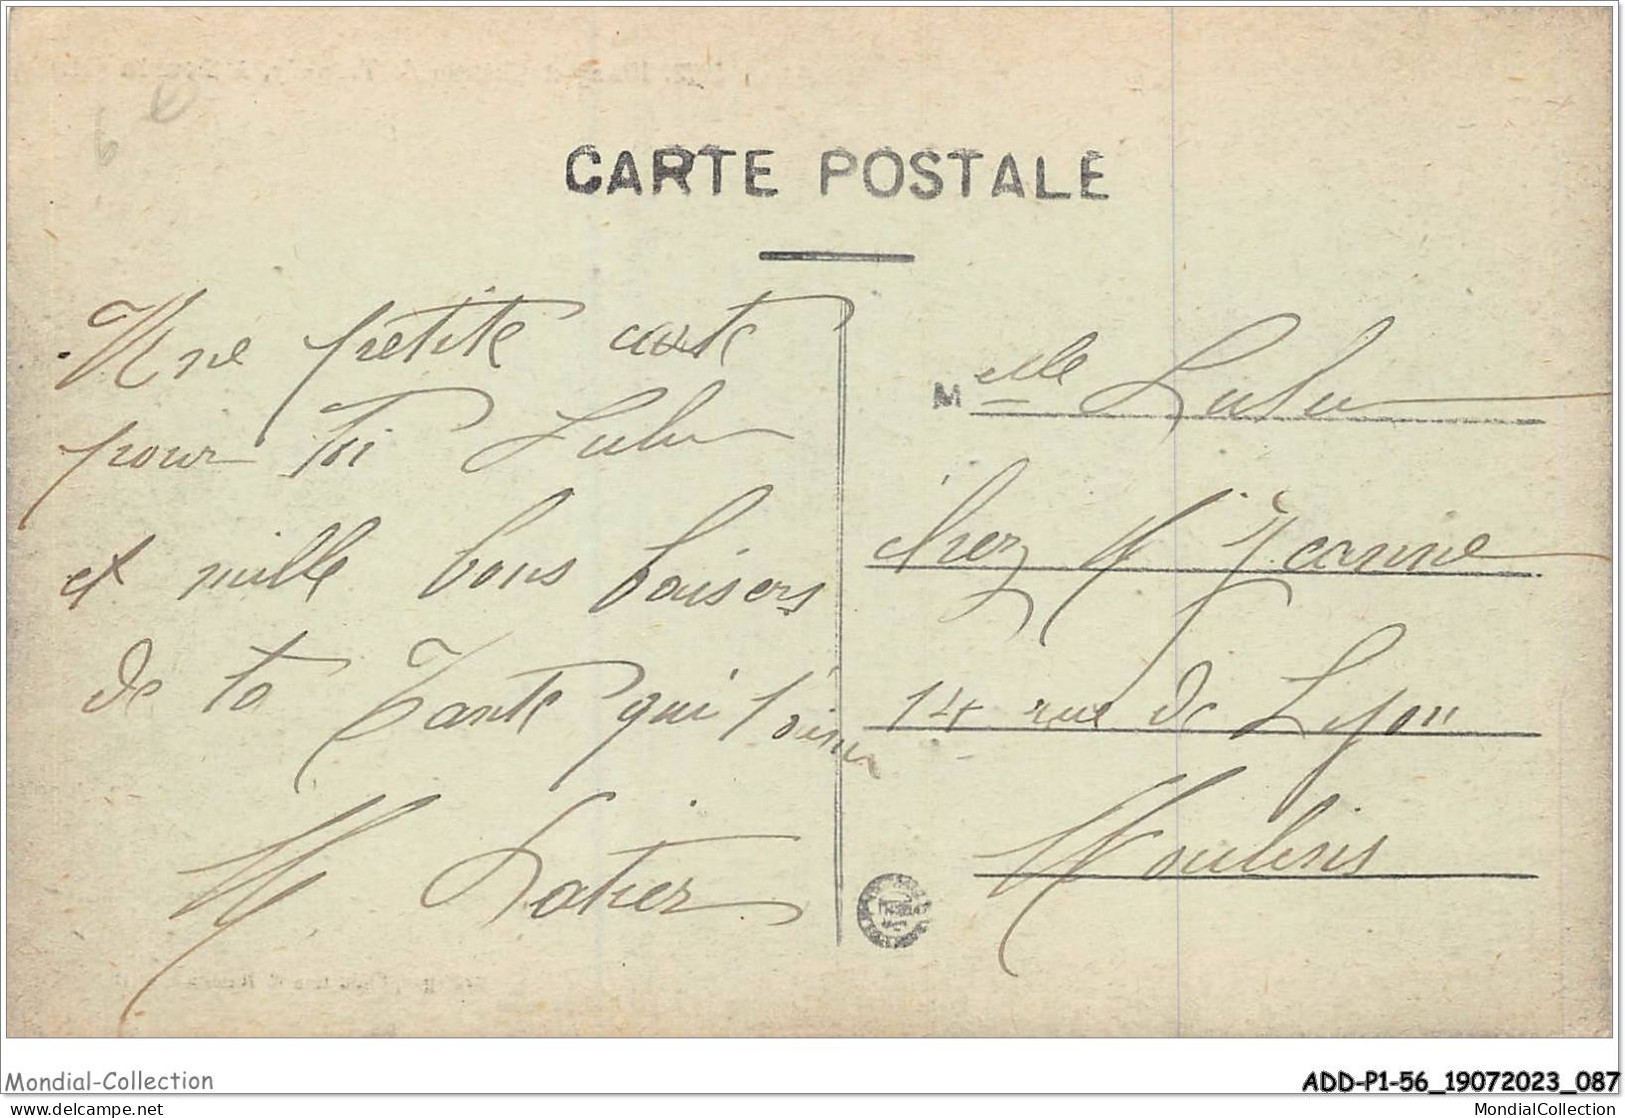 CARTE POSTALE
Une petite carte
pour toi Lulu
et mille bons baisers
de ta Tante qui t'aime
M
Melle Lulu
chez M Jeanne
14 rue de Lyon
Moulins
Mondial-Collection
ADD-P1-56_19072023_087
www.delcampe.net
MondialCollection